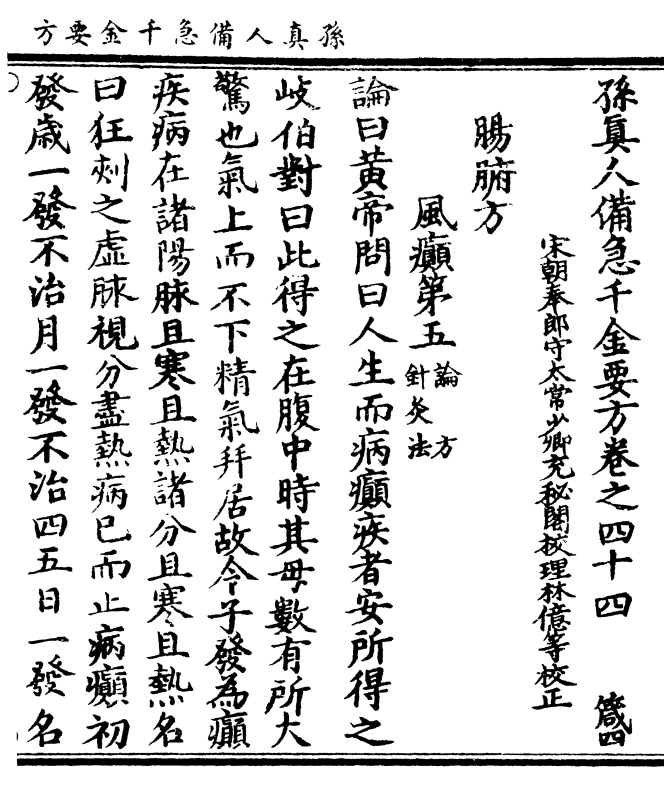 孫真人備急千金要方
孫真人備急千金要方卷之四十四 箴四
宋朝奉郎守太常少卿充秘閣挍理林億等校正
腸腑方
風癲第五 論 方 針灸法
論曰黃帝問曰人生而病癲疾者安所得之
岐伯對曰此得之在腹中時其母數有所大
驚也氣上而不下精氣并居故令子發為癲
疾病在諸陽脉且寒且熱諸分且寒且熱名
曰狂刺之虛脉視分盡熱病已而止病癲初
發歳一發不治月一發不治四五日一發名